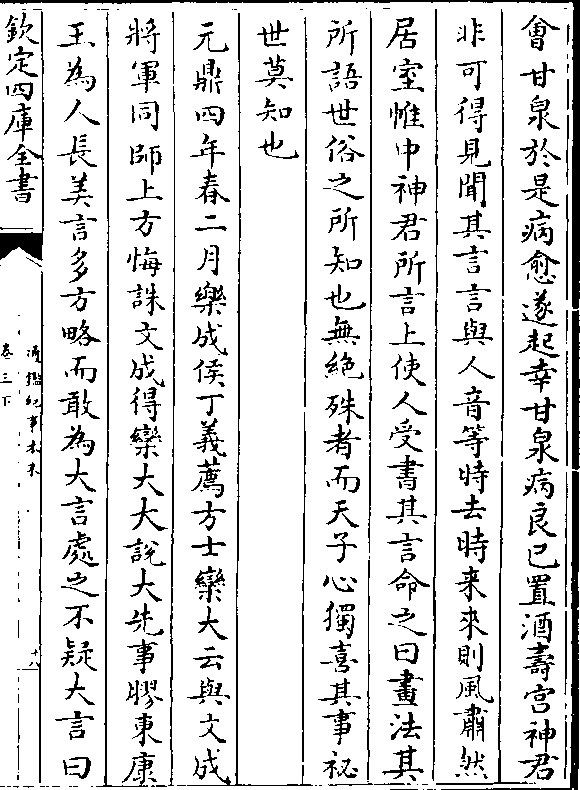 會甘泉於是病愈遂起幸甘泉病良已置酒壽宫神君
非可得見聞其言言與人音等時去時来來則風肅然
居室帷中神君所言上使人受書其言命之曰畫法其
所語世俗之所知也無絶殊者而天子心獨喜其事祕
世莫知也
元鼎四年春二月樂成侯丁義薦方士欒大云與文成
將軍同師上方悔誅文成得欒大大說大先事膠東康
王為人長美言多方略而敢為大言處之不疑大言曰
欽定四庫全書
通鑑紀事本末
卷三下
十八